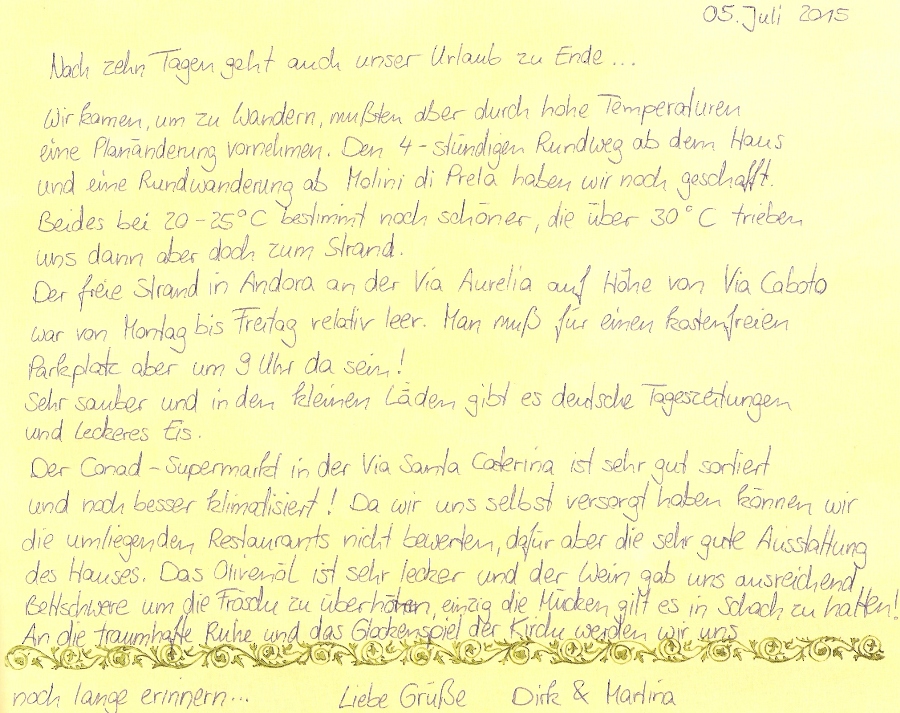 05. Juli 2015
Nach zehn Tagen geht auch unser Urlaub zu Ende...
Wir kamen, um zu Wandern, mußten aber durch hohe Temperaturen
eine Planänderung vornehmen. Den 4-stündigen Rundweg ab dem Haus
und eine Rundwanderung ab Molini di Prela haben wir noch geschafft.
Beides bei 20-25°C bestimmt noch schöner, die über 30°C trieben
uns dann aber doch zum Strand.
Der freie Strand in Andora an der Via Aurelia auf Höhe von Via Caboto
war von Montag bis Freitag relativ leer. Man muß für einen kostenfreien
Parkplatz aber um 9 Uhr da sein!
Sehr sauber und in den kleinen Läden gibt es deutsche Tageszeitungen
und leckeres Eis.
Der Conad-Supermarkt in der Via Santa Caterina ist sehr gut sortiert
und noch besser klimatisiert! Da wir uns selbst versorgt haben können wir
die umliegenden Restaurants nicht bewerten, dafür aber die sehr gute Ausstattung
des Hauses. Das Olivenöl ist sehr lecker und der Wein gab uns ausreichend
Bettschwere um die Frösche zu überhören, einzig die Mücken gilt es in Schach zu halten!
An die traumhafte Ruhe und das Glockenspiel der Kirche werden wir uns
noch lange erinnern... Liebe Grüße Dirk & Martina